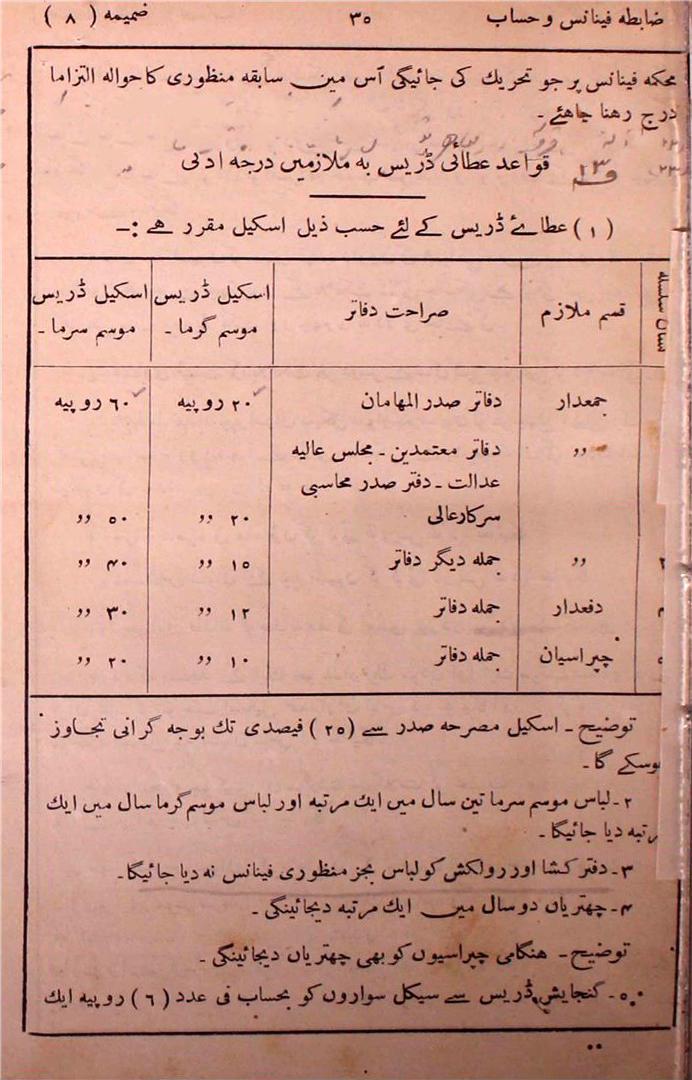 ضابطه فینانس و حساب ۳۵ ضمیمه ( ۸ )
محکمه فینانس پر جو تحریك کی جائیگی اُس میں سابقه منظوری کا حواله التزاما
درج رهنا چاهئے۔
قواعد عطائی ڈریس به ملازمیں درجه ادنی
( ۱ ) عطاۓ ڈریس کے لئے حسب ذیل اسکیل مقرر هے :۔
قسم ملازم صراحت دفاتر اسکیل ڈریس موسم گرما۔ اسکیل ڈریس موسم سرما۔
جمعدار دفاتر صدر المهامان ۲۰ روپیه ۶۰ روپیه
,, دفاتر معتمدین۔ مجلس عالیه
عدالت۔ دفتر صدر محاسبی
سرکارعالی ۲۰ ,, ۵۰ ,,
,, جمله دیگر دفاتر ۱۵ ,, ۴۰ ,,
دفعدار جمله دفاتر ۱۲ ,, ۳۰ ,,
چپراسیان جمله دفاتر ۱۰ ,, ۲۰ ,,
توضیح۔ اسکیل مصرحه صدر سے ( ۲۵ ) فیصدی تك بوجه گرانی تجاوز
هوسکے گا۔
۲۔ لباس موسم سرما تین سال میں ایك مرتبه اور لباس موسم گرما سال میں ایك
مرتبه دیا جائیگا۔
۳۔ دفتر کشا اور رولکش کو لباس بجز منظوری فینانس نه دیا جائیگا۔
۴۔ چهتریاں دو سال میں ایك مرتبه دیجائینگی۔
توضیح۔ هنگامی چپراسیوں کو بهی چهتریاں دیجائینگی۔
۵۔ گنجایش ڈریس سے سیکل سواروں کو بحساب فی عدد ( ۶ ) روپیه ایك